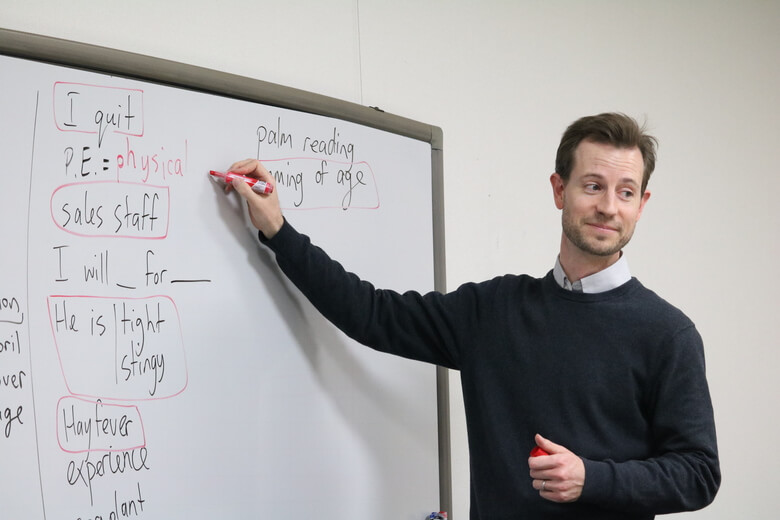 I quit
P.E. = physical
sales staff
I will _ for __
He is | tight
stingy
Hayfever
experience
palm reading
of age